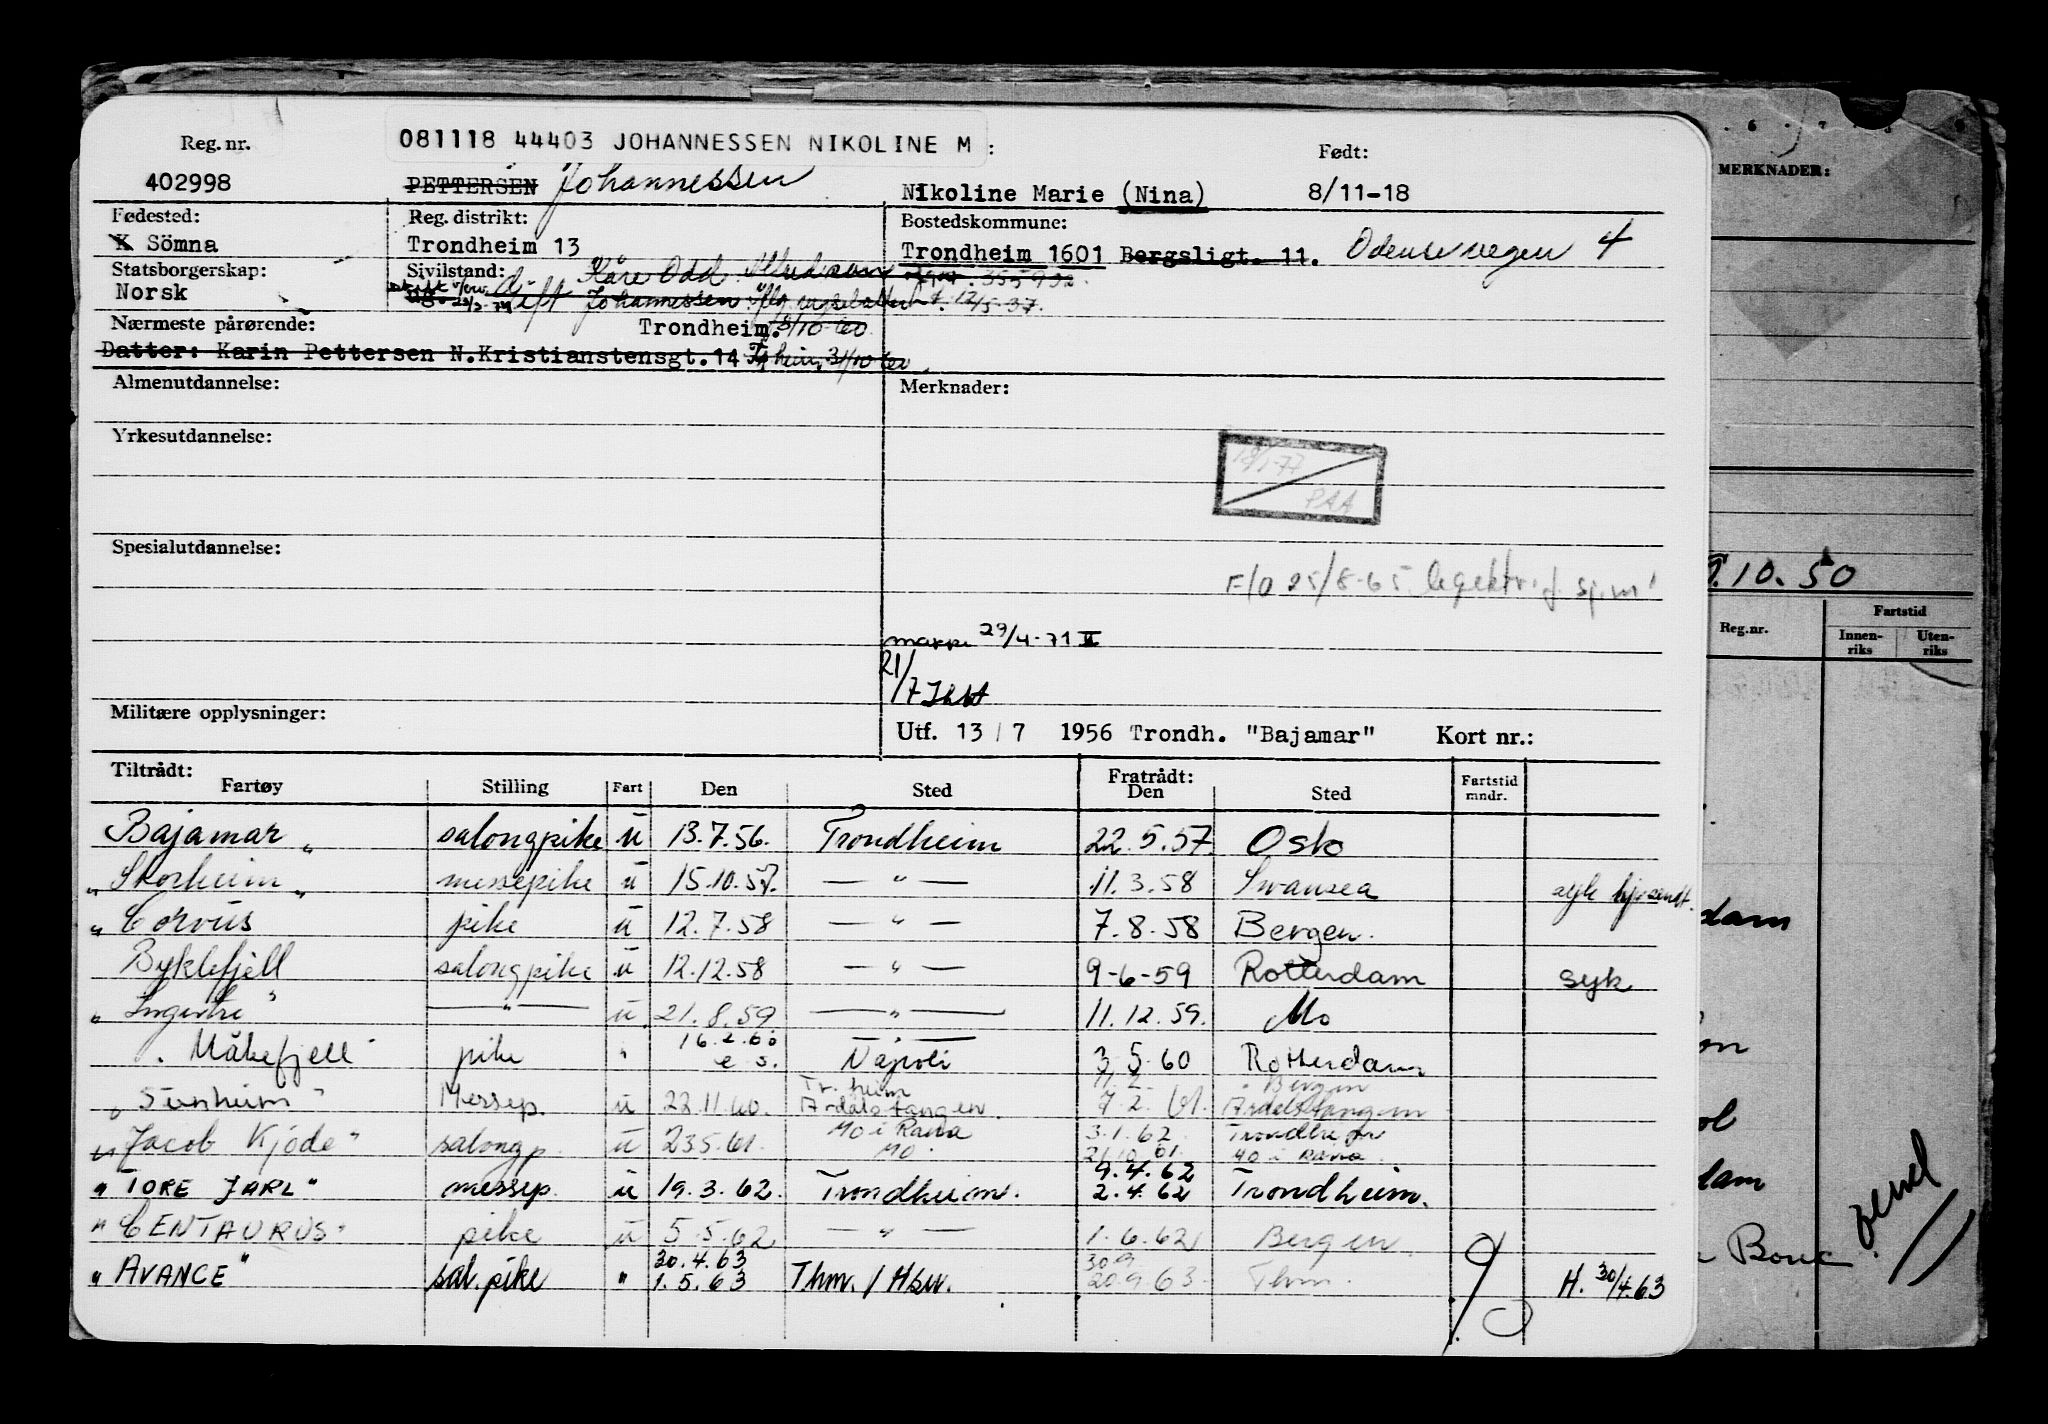 081118 44403 JOHANNESSEN NIKOLINE M :
Reg. nr. Født:
402998 PETTERSEN Johannessen Nikoline Marie (Nina) 8/11-18
Fødested: Reg. distrikt: Bostedskommune:
K Sömna Trondheim 13 Trondheim 1601 Bergsligt. 11. Odensevegen 4
Statsborgerskap: Sivilstand: Kåre Odd
Norsk ug. gift Johannessen f. 12/5-37.
Nærmeste pårørende: Trondheim. 3/10-60
Datter: Karin Pettersen N.Kristianstensgt.14 Tr.heim, 31/10-60
Almenutdannelse: Merknader:
Yrkesutdannelse:
18/1-77
PAA
Spesialutdannelse:
F/O 25/8-65
29/4-71 II
21/7
Militære opplysninger: Utf. 13 / 7 1956 Trondh. "Bajamar" Kort nr.:
Tiltrådt: Fratrådt:
Fartøy Stilling Fart Den Sted Den Sted Fartstid mndr.
Bajamar " salongpike u 13.7.56. Trondheim 22.5.57. Oslo
" Skorheim " messepike u 15.10.57. — " — 11.3.58 Swansea syk hj.sendt.
" Corvus pike u 12.7.58 — " — 7.8.58 Bergen.
Byklefjell salongpike u 12.12.58 — " — 9-6-59 Rotterdam syk
" Ingerthe " — " — u 21.8.59 — " — 11.12.59. Mo
16.2.60 — " —
" Måkefjell " pike " e.s. Napoli 3.5.60 Rotterdam
Tr.heim 11.2. Bergen
" Sunheim " Messep. u 22.11.60. Årdalstangen. 7.2.61. Årdalstangen
Mo i Rana 3.1.62 Trondheim
" Jacob Kjøde " salongp. u 23.5.61. Mo. 21.10.61. Mo i Rana.
9.4.62
" TORE JARL " messep. u 19.3.62. Trondheim. 2.4.62 Trondheim.
" CENTAURUS " pike u 5.5.62 — " — 1.6.62 Bergen
30.4.63 30.9
" AVANCE " sal.pike " 1.5.63 Thm. / Hsv. 20.9.63. Thm. H. 30/4.63
6 7 8 9
MERKNADER:
.10.50
Reg.nr. Fartstid
Innen-riks Uten-riks
dam